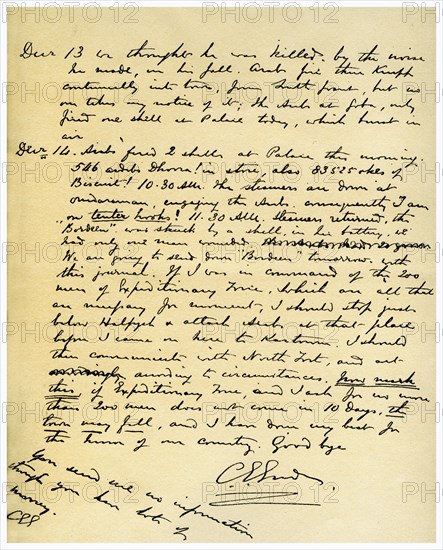 Decr 13 we thought he was killed by the noise
he made, in his fall. Arabs fire their Krupp
continually into town, from South front, but no
one takes any notice of it; The Arabs at Goba, only
fired one shell at Palace today, which burst in
air—
Decr 14. Arabs fired 2 shells at Palace this morning.
546 ardebs Dhoora! in store, also 83525 okes of
Biscuit! 10.30 AM. The steamers are down at
Omdurman, engaging the Arabs, consequently I am
"on tenter hooks! 11.30 AM. Steamers returned, the
"Bordeen" was struck by a shell, in her battery, we
had only one man wounded.
We are going to send down "Bordeen" tomorrow with
this journal. If I was in command of the 200
men of Expeditionary Force, which are all that
are necessary for moment, I should stop just
below Halfyeh & attack Arabs at that place
before I came on here to Kartoum, I should
then communicate with North Fort, and act
according to circumstances. Now mark
this, if Expeditionary Force, and I ask for no more
than 200 men does not come in 10 Days, the
town may fall, and I have done my best for
the honor of our country. Good bye
C G Gordon
You send me no information
though you have lots of
money.
CGG